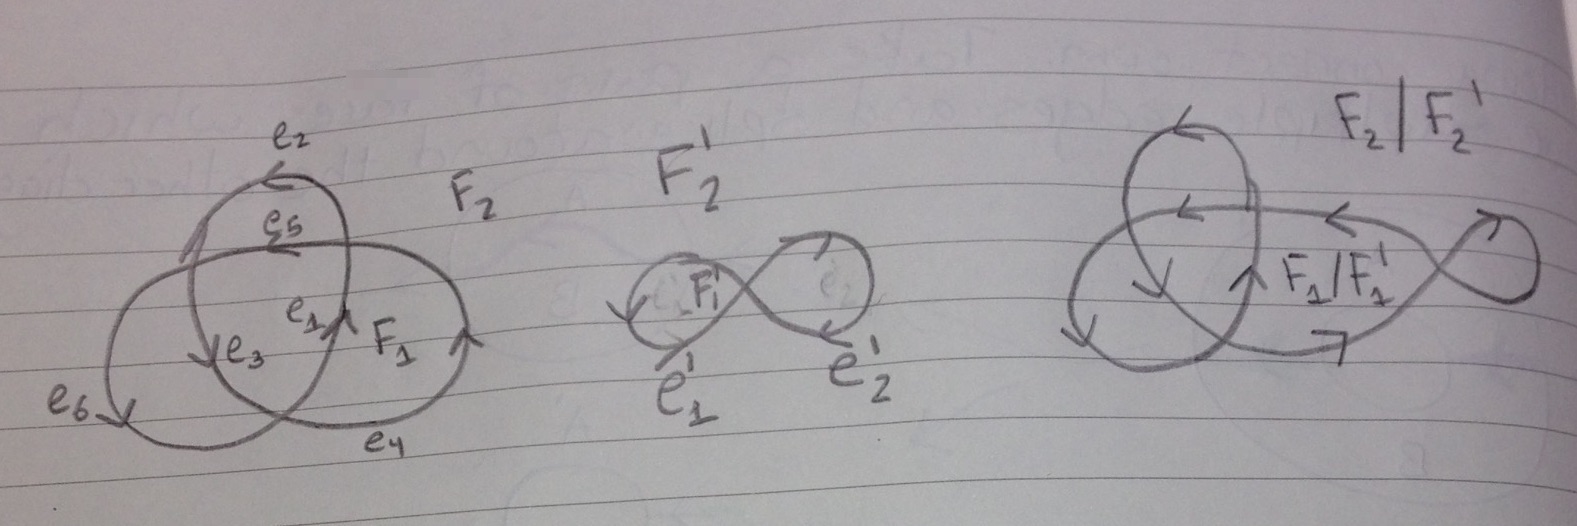 e₂
F₂
e₅
e₁
F₁
e₃
e₆
e₄
F₂'
F₁'
e₁'
e₂'
F₂ | F₂'
F₁ | F₁'